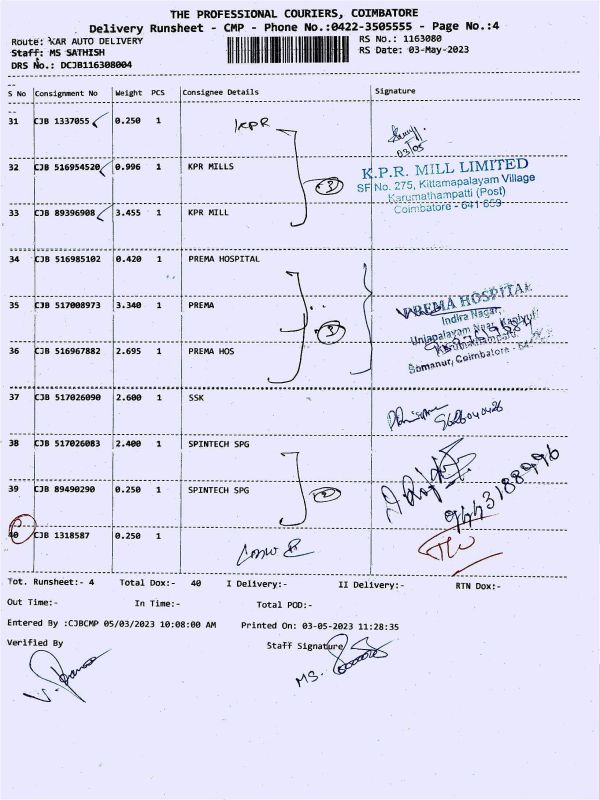 THE PROFESSIONAL COURIERS, COIMBATORE
Delivery Runsheet - CMP - Phone No.:0422-3505555 - Page No.:4
Route: KAR AUTO DELIVERY
RS No.: 1163080
Staff: MS SATHISH
RS Date: 03-May-2023
DRS No.: DCJB116308004
S No Consignment No Weight PCS Consignee Details Signature
31 CJB 1337055 0.250 1 KPR
03/05
32 CJB 516954520 0.996 1 KPR MILLS
3
K.P.R. MILL LIMITED
SF No. 275, Kittampalayam Village
Karumathampatti (Post)
Coimbatore - 641 659
33 CJB 89396908 3.455 1 KPR MILL
34 CJB 516985102 0.420 1 PREMA HOSPITAL
35 CJB 517008973 3.340 1 PREMA
3
PREMA HOSPITAL
Indira Nagar,
Unjapalayam Near,
Somanur, Coimbatore
36 CJB 516967882 2.695 1 PREMA HOS
37 CJB 517026090 2.600 1 SSK
38 CJB 517026083 2.400 1 SPINTECH SPG
39 CJB 89490290 0.250 1 SPINTECH SPG
2
40 CJB 1318587 0.250 1
Tot. Runsheet:- 4 Total Dox:- 40 I Delivery:- II Delivery:- RTN Dox:-
Out Time:- In Time:- Total POD:-
Entered By :CJBCMP 05/03/2023 10:08:00 AM Printed On: 03-05-2023 11:28:35
Verified By Staff Signature
MS.